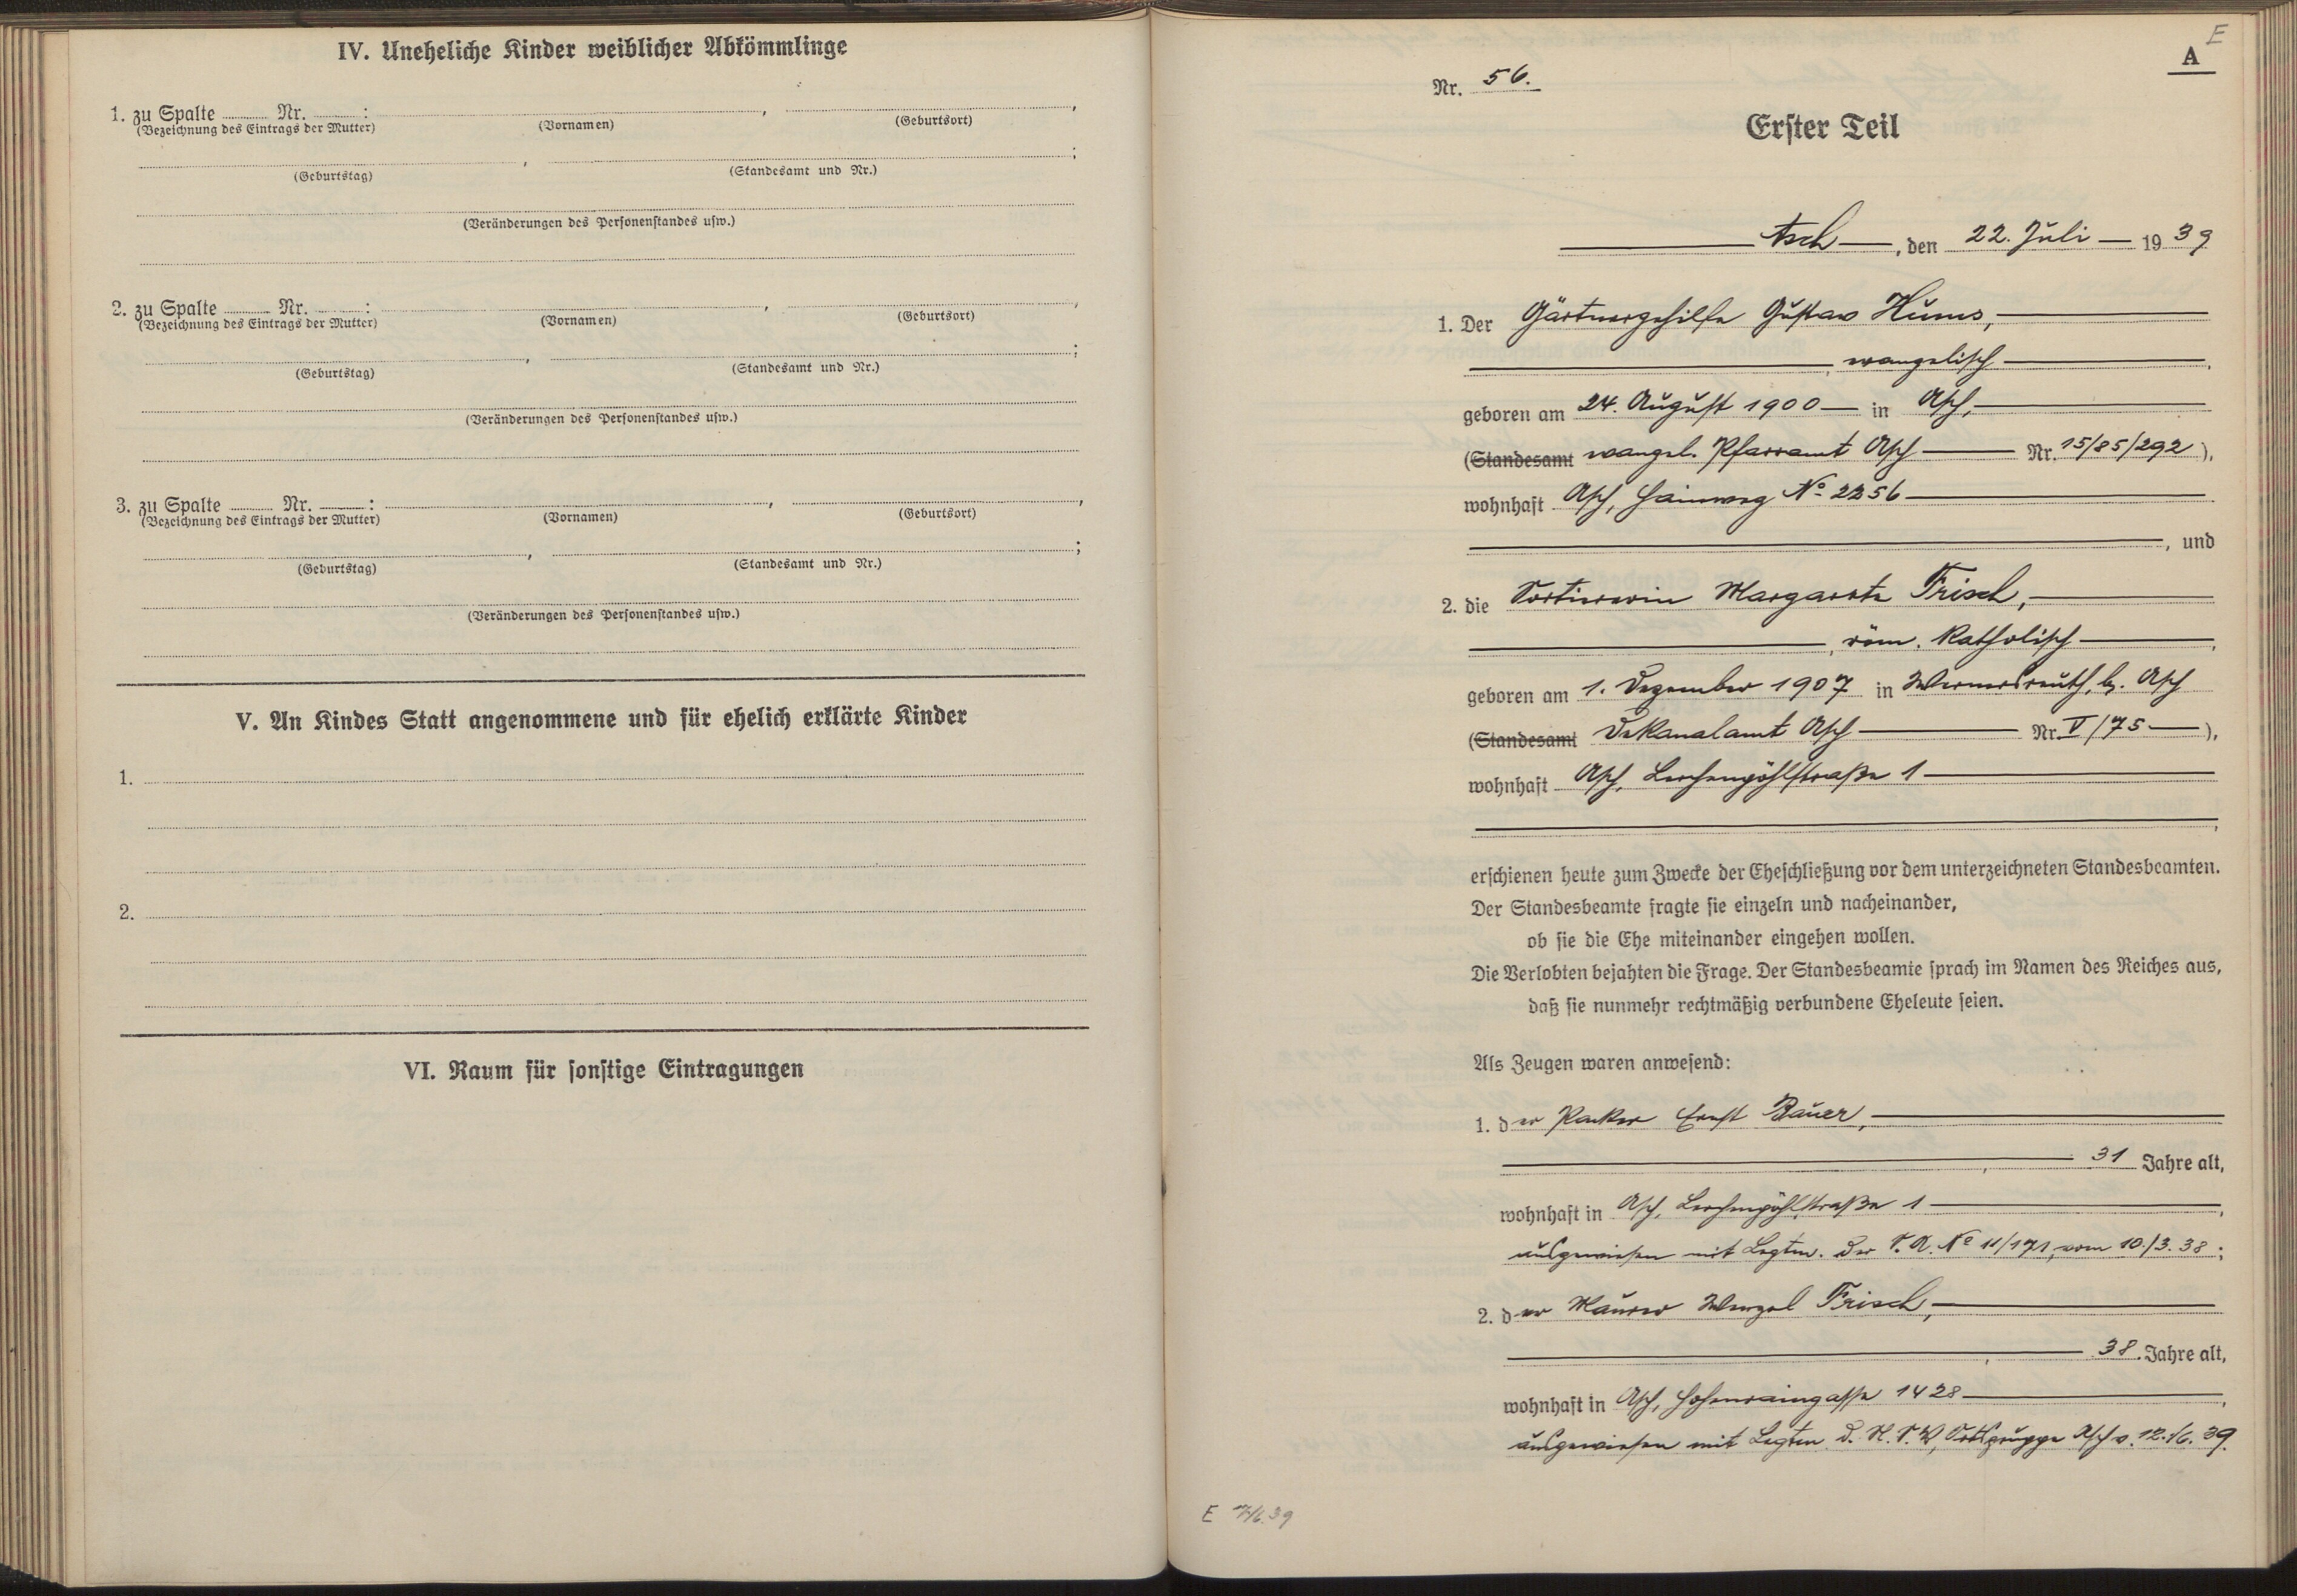 IV. Uneheliche Kinder weiblicher Abkömmlinge
1. zu Spalte Nr. :
(Bezeichnung des Eintrags der Mutter) (Vornamen) (Geburtsort)
(Geburtstag) (Standesamt und Nr.)
(Veränderungen des Personenstandes usw.)
2. zu Spalte Nr. :
(Bezeichnung des Eintrags der Mutter) (Vornamen) (Geburtsort)
(Geburtstag) (Standesamt und Nr.)
(Veränderungen des Personenstandes usw.)
3. zu Spalte Nr. :
(Bezeichnung des Eintrags der Mutter) (Vornamen) (Geburtsort)
(Geburtstag) (Standesamt und Nr.)
(Veränderungen des Personenstandes usw.)
V. An Kindes Statt angenommene und für ehelich erklärte Kinder
1.
2.
VI. Raum für sonstige Eintragungen
E
A
Nr. 56.
Erster Teil
Asch, den 22. Juli 1939
1. Der Gärtnergehilfe Gustav Hums,
evangelisch,
geboren am 24. August 1900 in Asch,
(Standesamt evangel. Pfarramt Asch Nr. 15/85/292),
wohnhaft Asch, Hainweg No 2256
, und
2. die Sortiererin Margarete Frisch,
röm. katholisch,
geboren am 1. Dezember 1907 in Wernersreuth, b. Asch
(Standesamt Dekanalamt Asch Nr. V/75),
wohnhaft Asch, Lerchenpöhlstraße 1
erschienen heute zum Zwecke der Eheschließung vor dem unterzeichneten Standesbeamten.
Der Standesbeamte fragte sie einzeln und nacheinander,
ob sie die Ehe miteinander eingehen wollen.
Die Verlobten bejahten die Frage. Der Standesbeamte sprach im Namen des Reiches aus,
daß sie nunmehr rechtmäßig verbundene Eheleute seien.
Als Zeugen waren anwesend:
1. der Packer Ernst Bauer,
31 Jahre alt,
wohnhaft in Asch, Lerchenpöhlstraße 1,
ausgewiesen mit Legtm. der No 11/171, vom 10./3. 38;
2. der Maurer Wenzel Frisch,
38. Jahre alt,
wohnhaft in Asch, Hohenraingasse 1428,
ausgewiesen mit Legtm. d. Ortsgruppe Asch v. 12./6. 39.